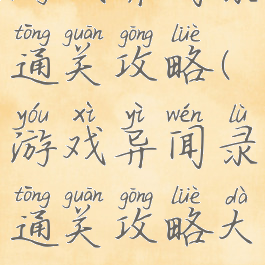 tōng guān gōng lüè
通关攻略(
yóu xì yì wén lù
游戏异闻录
tōng guān gōng lüè dà
通关攻略大